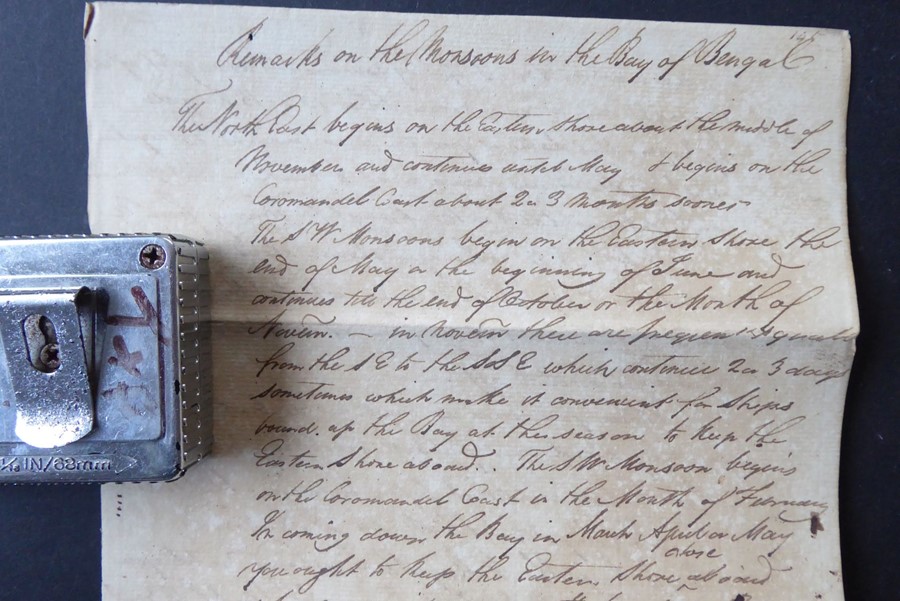 145
Remarks on the Monsoons in the Bay of Bengal
The North East begins on the Eastern Shore about the middle of
November and continues until May & begins on the
Coromandel Cast about 2 or 3 Months sooner
The S W Monsoons begin on the Eastern Shore the
end of May or the beginning of June and
continues till the end of October or the Month of
Novem. — in Novem there are frequent Squalls
from the S E to the S S E which continue 2 or 3 days
sometimes which make it convenient for Ships
bound up the Bay at this season to keep the
Eastern Shore aboard. The S W Monsoon begins
on the Coromandel Cast in the Month of
In coming down the Bay in March April or May
close
you ought to keep the Eastern Shore aboard
IN/68mm